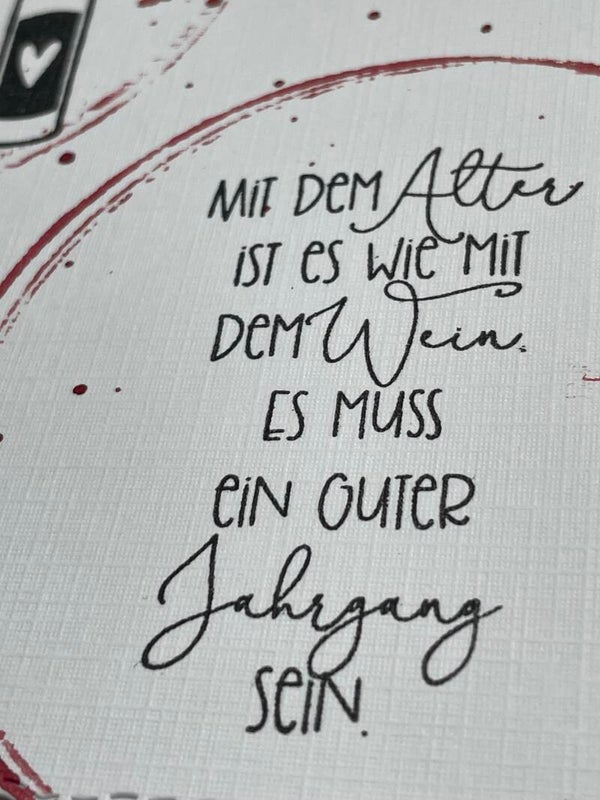 MIT DEM Alter
IST ES WIE MIT
DEM Wein.
ES MUSS
EIN GUTER
Jahrgang
SEIN.